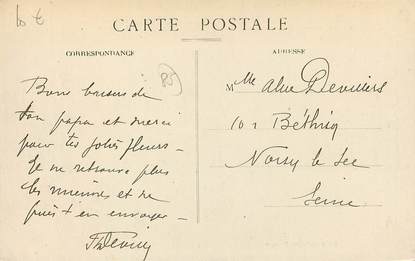 CARTE POSTALE
CORRESPONDANCE
ADRESSE
Bons baisers de
ton papa et merci
pour tes jolies fleurs -
Je ne retrouve plus
les miennes et ne
puis + en envoyer -
Mlle Devillers
101 Béthisy
Noisy le Sec
Seine